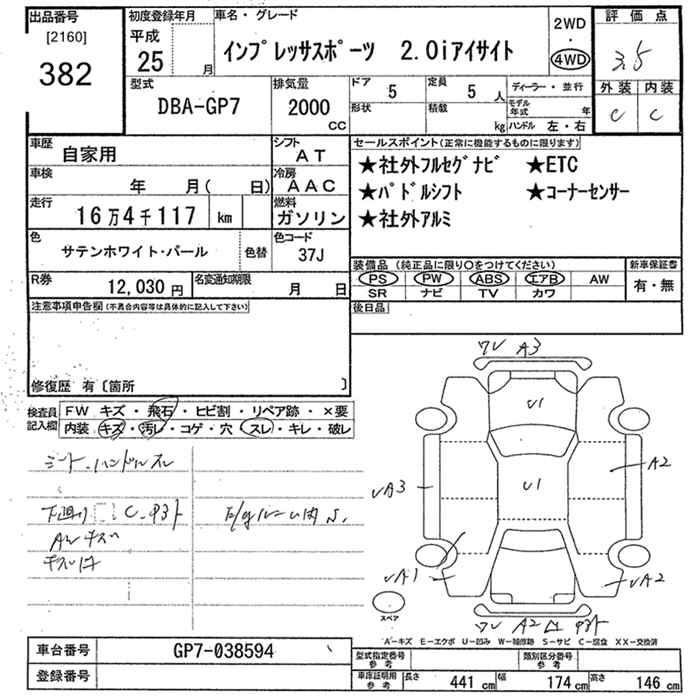 出品番号
[2160]
382
初度登録年月
平成
25 月
車名・グレード
インプレッサスポーツ 2.0iアイサイト
2WD
4WD
評価点
3.5
外装 内装
C C
型式
DBA-GP7
排気量
2000
CC
ドア 5
定員 5 人
形状
積載 kg
ディーラー・並行
モデル年式 年
ハンドル 左・右
車歴 自家用
シフト AT
車検 年 月( 日)
冷房 AAC
走行 16万4千117 km
燃料 ガソリン
色 サテンホワイト・パール
色替
色コード 37J
R券 12,030円
名変通知期限 月 日
セールスポイント(正常に機能するものに限ります)
★社外フルセグナビ ★ETC
★パドルシフト ★コーナーセンサー
★社外アルミ
装備品(純正品に限り○をつけてください)
PS PW ABS エアB AW
SR ナビ TV カワ
新車保証書
有・無
後日品
注意事項申告欄(不具合内容等は具体的に記入して下さい)
修復歴 有〔箇所 〕
検査員記入欄
FW キズ・飛石・ヒビ割・リペア跡・×要
内装 キズ・汚レ・コゲ・穴・スレ・キレ・破レ
シート、ハンドルスレ
下廻り C
AWキズ
ワレ A3
U1
U1
A2
UA3
UA1
UA2
ワレ A2
スペア
A-キズ E-エクボ U-凹み W-補修跡 S-サビ C-腐食 XX-交換済
車台番号 GP7-038594
登録番号
型式指定番号 参考
類別区分番号 参考
車庫証明用 参考
長さ 441 cm 幅 174 cm 高さ 146 cm